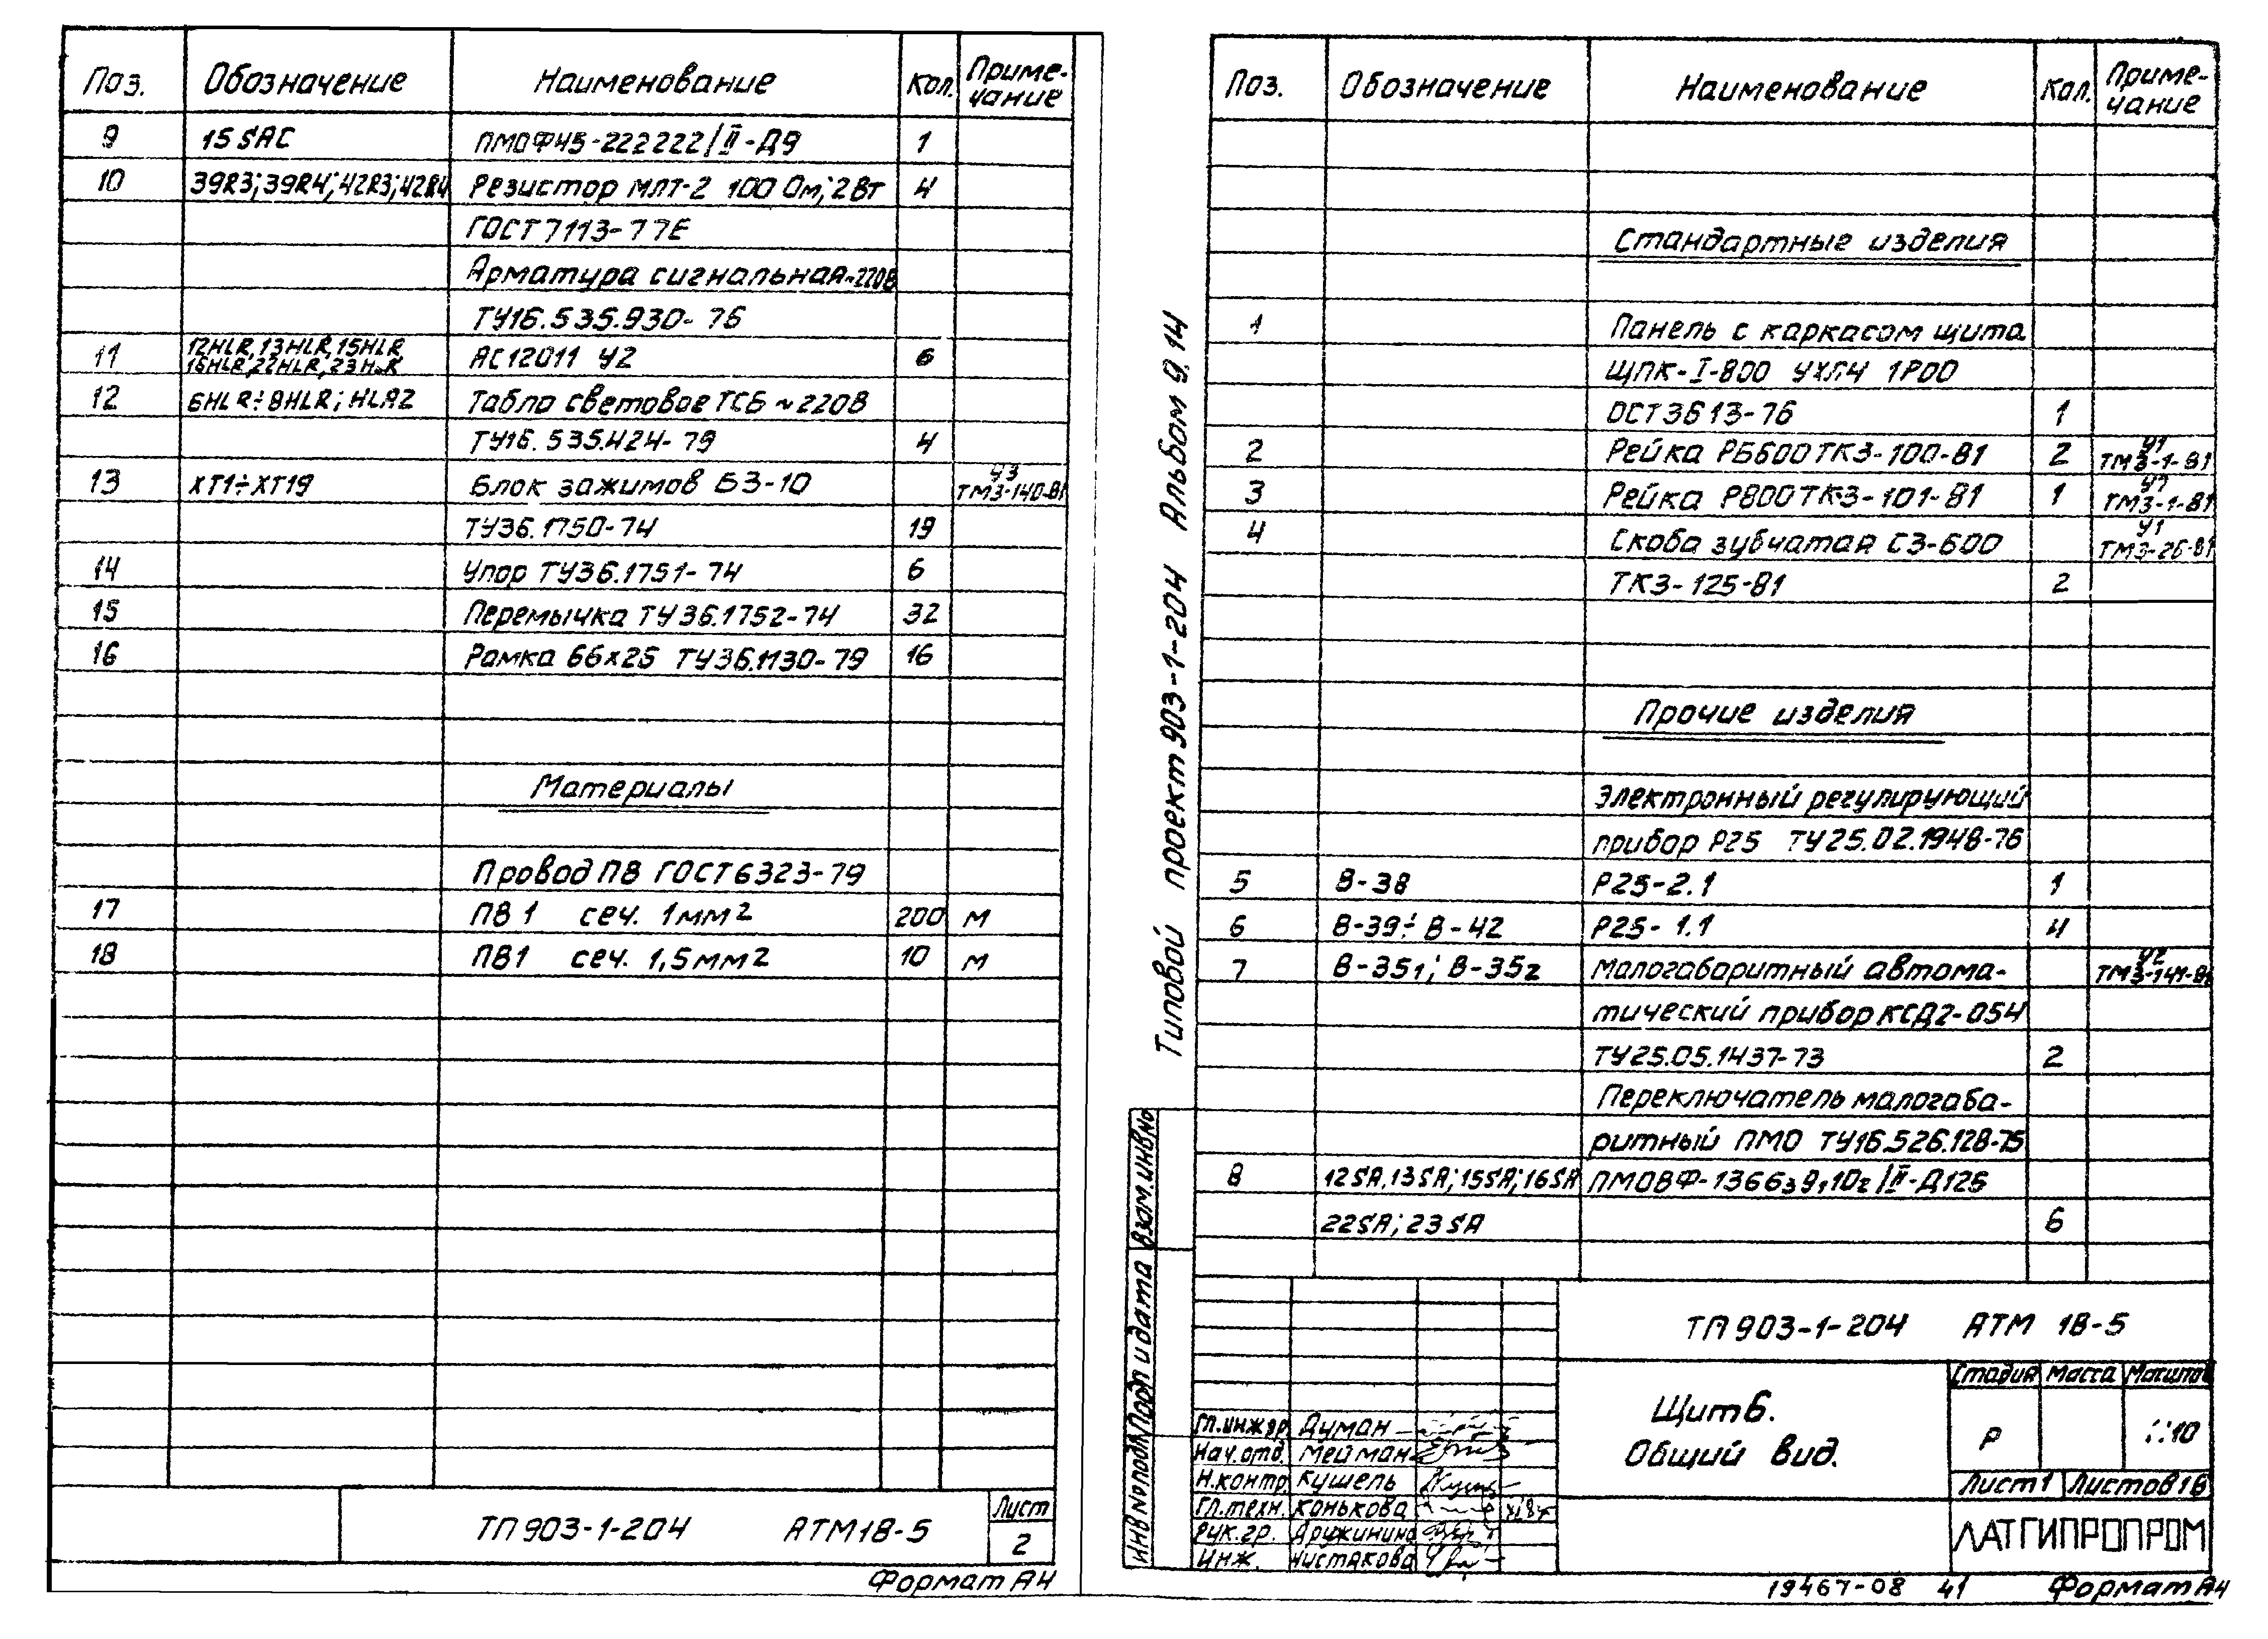 Поз. Обозначение Наименование Кол. Приме-
чание
9 15SAC ПМОФ45-222222/II-Д9 1
10 39R3; 39R4; 42R3; 42R4 Резистор МЛТ-2 100 Ом; 2Вт 4
ГОСТ 7113-77Е
Арматура сигнальная ~220В
ТУ16.535.930-76
11 12HLR, 13HLR, 15HLR
16HLR, 22HLR, 23HLR АС12011 У2 6
12 6HLR÷8HLR; HLA2 Табло световое ТСБ ~220В
ТУ16.535.424-79 4
13 ХТ1÷ХТ19 Блок зажимов БЗ-10 У3
ТМ3-140-81
ТУ36.1750-74 19
14 Упор ТУ36.1751-74 6
15 Перемычка ТУ36.1752-74 32
16 Рамка 66х26 ТУ36.1130-79 16
Материалы
Провод ПВ ГОСТ 6323-79
17 ПВ1 сеч. 1мм2 200 м
18 ПВ1 сеч. 1,5мм2 10 м
ТП 903-1-204 АТМ18-5 Лист
2
Формат А4
Типовой проект 903-1-204 Альбом 9.14
Поз. Обозначение Наименование Кол. Приме-
чание
Стандартные изделия
1 Панель с каркасом щита
ЩПК-I-800 УХЛ4 IP00
ОСТ3613-76 1
2 Рейка РБ600 ТК3-100-81 2 У1
ТМ3-1-81
3 Рейка Р800 ТК3-101-81 1 У7
ТМ3-1-81
4 Скоба зубчатая СЗ-600 У1
ТМ3-26-81
ТК3-125-81 2
Прочие изделия
Электронный регулирующий
прибор Р25 ТУ25.02.1948-76
5 В-38 Р25-2.1 1
6 В-39÷В-42 Р25-1.1 4
7 В-351; В-352 Малогабаритный автома- У2
ТМ3-141-81
тический прибор КСД2-054
ТУ25.05.1437-73 2
Переключатель малогаба-
ритный ПМО ТУ16.526.128-75
8 12SA, 13SA; 15SA; 16SA ПМОВФ-1366398110г/II-Д126
22SA; 23SA 6
Взам.инв№
Подп и дата
Инв№подл
ТП 903-1-204 АТМ 18-5
Щит 6.
Общий вид.
Стадия Масса Масштаб
Р 1:10
Лист 1 Листов 16
ЛАТГИПРОПРОМ
Гл.инж пр. Думан
Нач.отд. Мейман
Н.контр Кушель
Гл.техн. Конькова
Рук.гр. Дружинина
Инж. Чистякова
19467-08 41 Формат А4